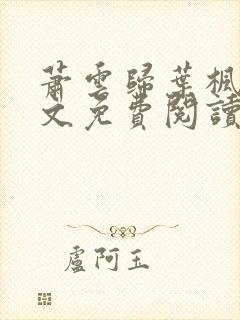 蕭雲歸葉楓
文免費閱讀
盧阿玉